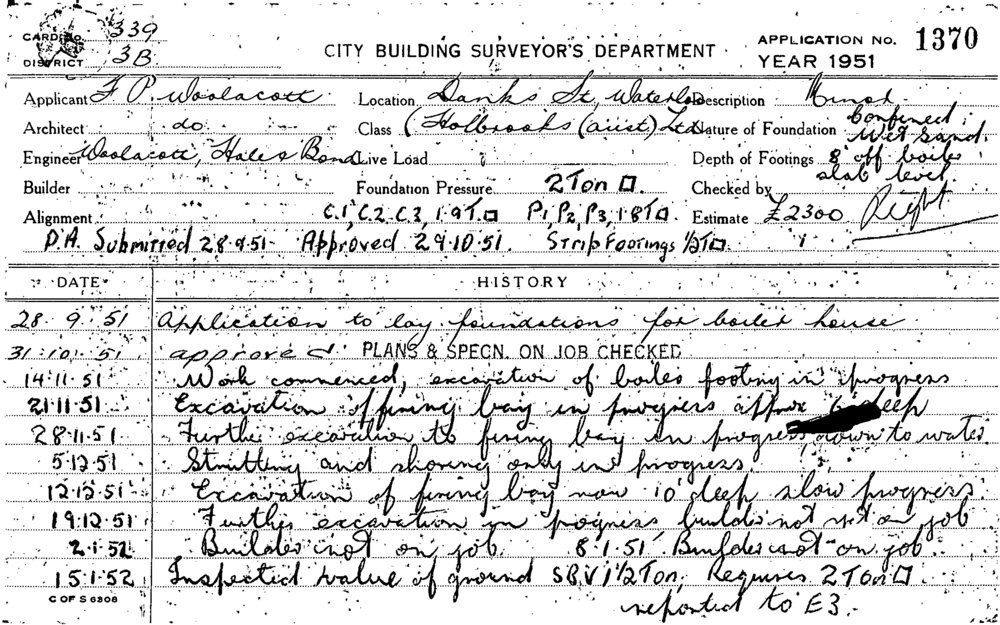 CARD No. 339
DISTRICT 3B
CITY BUILDING SURVEYOR'S DEPARTMENT
APPLICATION No. 1370
YEAR 1951
Applicant F P. Woolacott Location Danks St, Waterloo Description Minor
Architect do Class (Holbrooks (aust) Ltd Nature of Foundation Confined Wet Sand.
Engineer Woolacott, Hales Bond Live Load Depth of Footings 8' off boiler slab level.
Builder Foundation Pressure 2 Ton □. Checked by
Alignment C.1, C.2, C.3, 1.9 T.□ P1, P2, P3, 1.8 T□. Estimate £2300
D.A. Submitted 28.9.51. Approved 29.10.51. Strip Footings 1/2 T□
DATE HISTORY
28.9.51 Application to lay foundations for boiler house
31.10.51 approved PLANS & SPECN. ON JOB CHECKED
14.11.51 Work commenced, excavation of boiler footing in progress
21.11.51 Excavation of firing bay in progress approx 6' deep
28.11.51 Further excavation to firing bay in progress, down to water
5.12.51 Strutting and shoring only in progress.
12.12.51 Excavation of firing bay now 10' deep slow progress.
19.12.51 Further excavation in progress, builder not yet on job
2.1.52 Builder not on job. 8.1.51. Builder not on job.
15.1.52 Inspected value of ground S.B.V 1 1/2 Ton, Requires 2 Ton □
reported to E3.
C OF S 6308